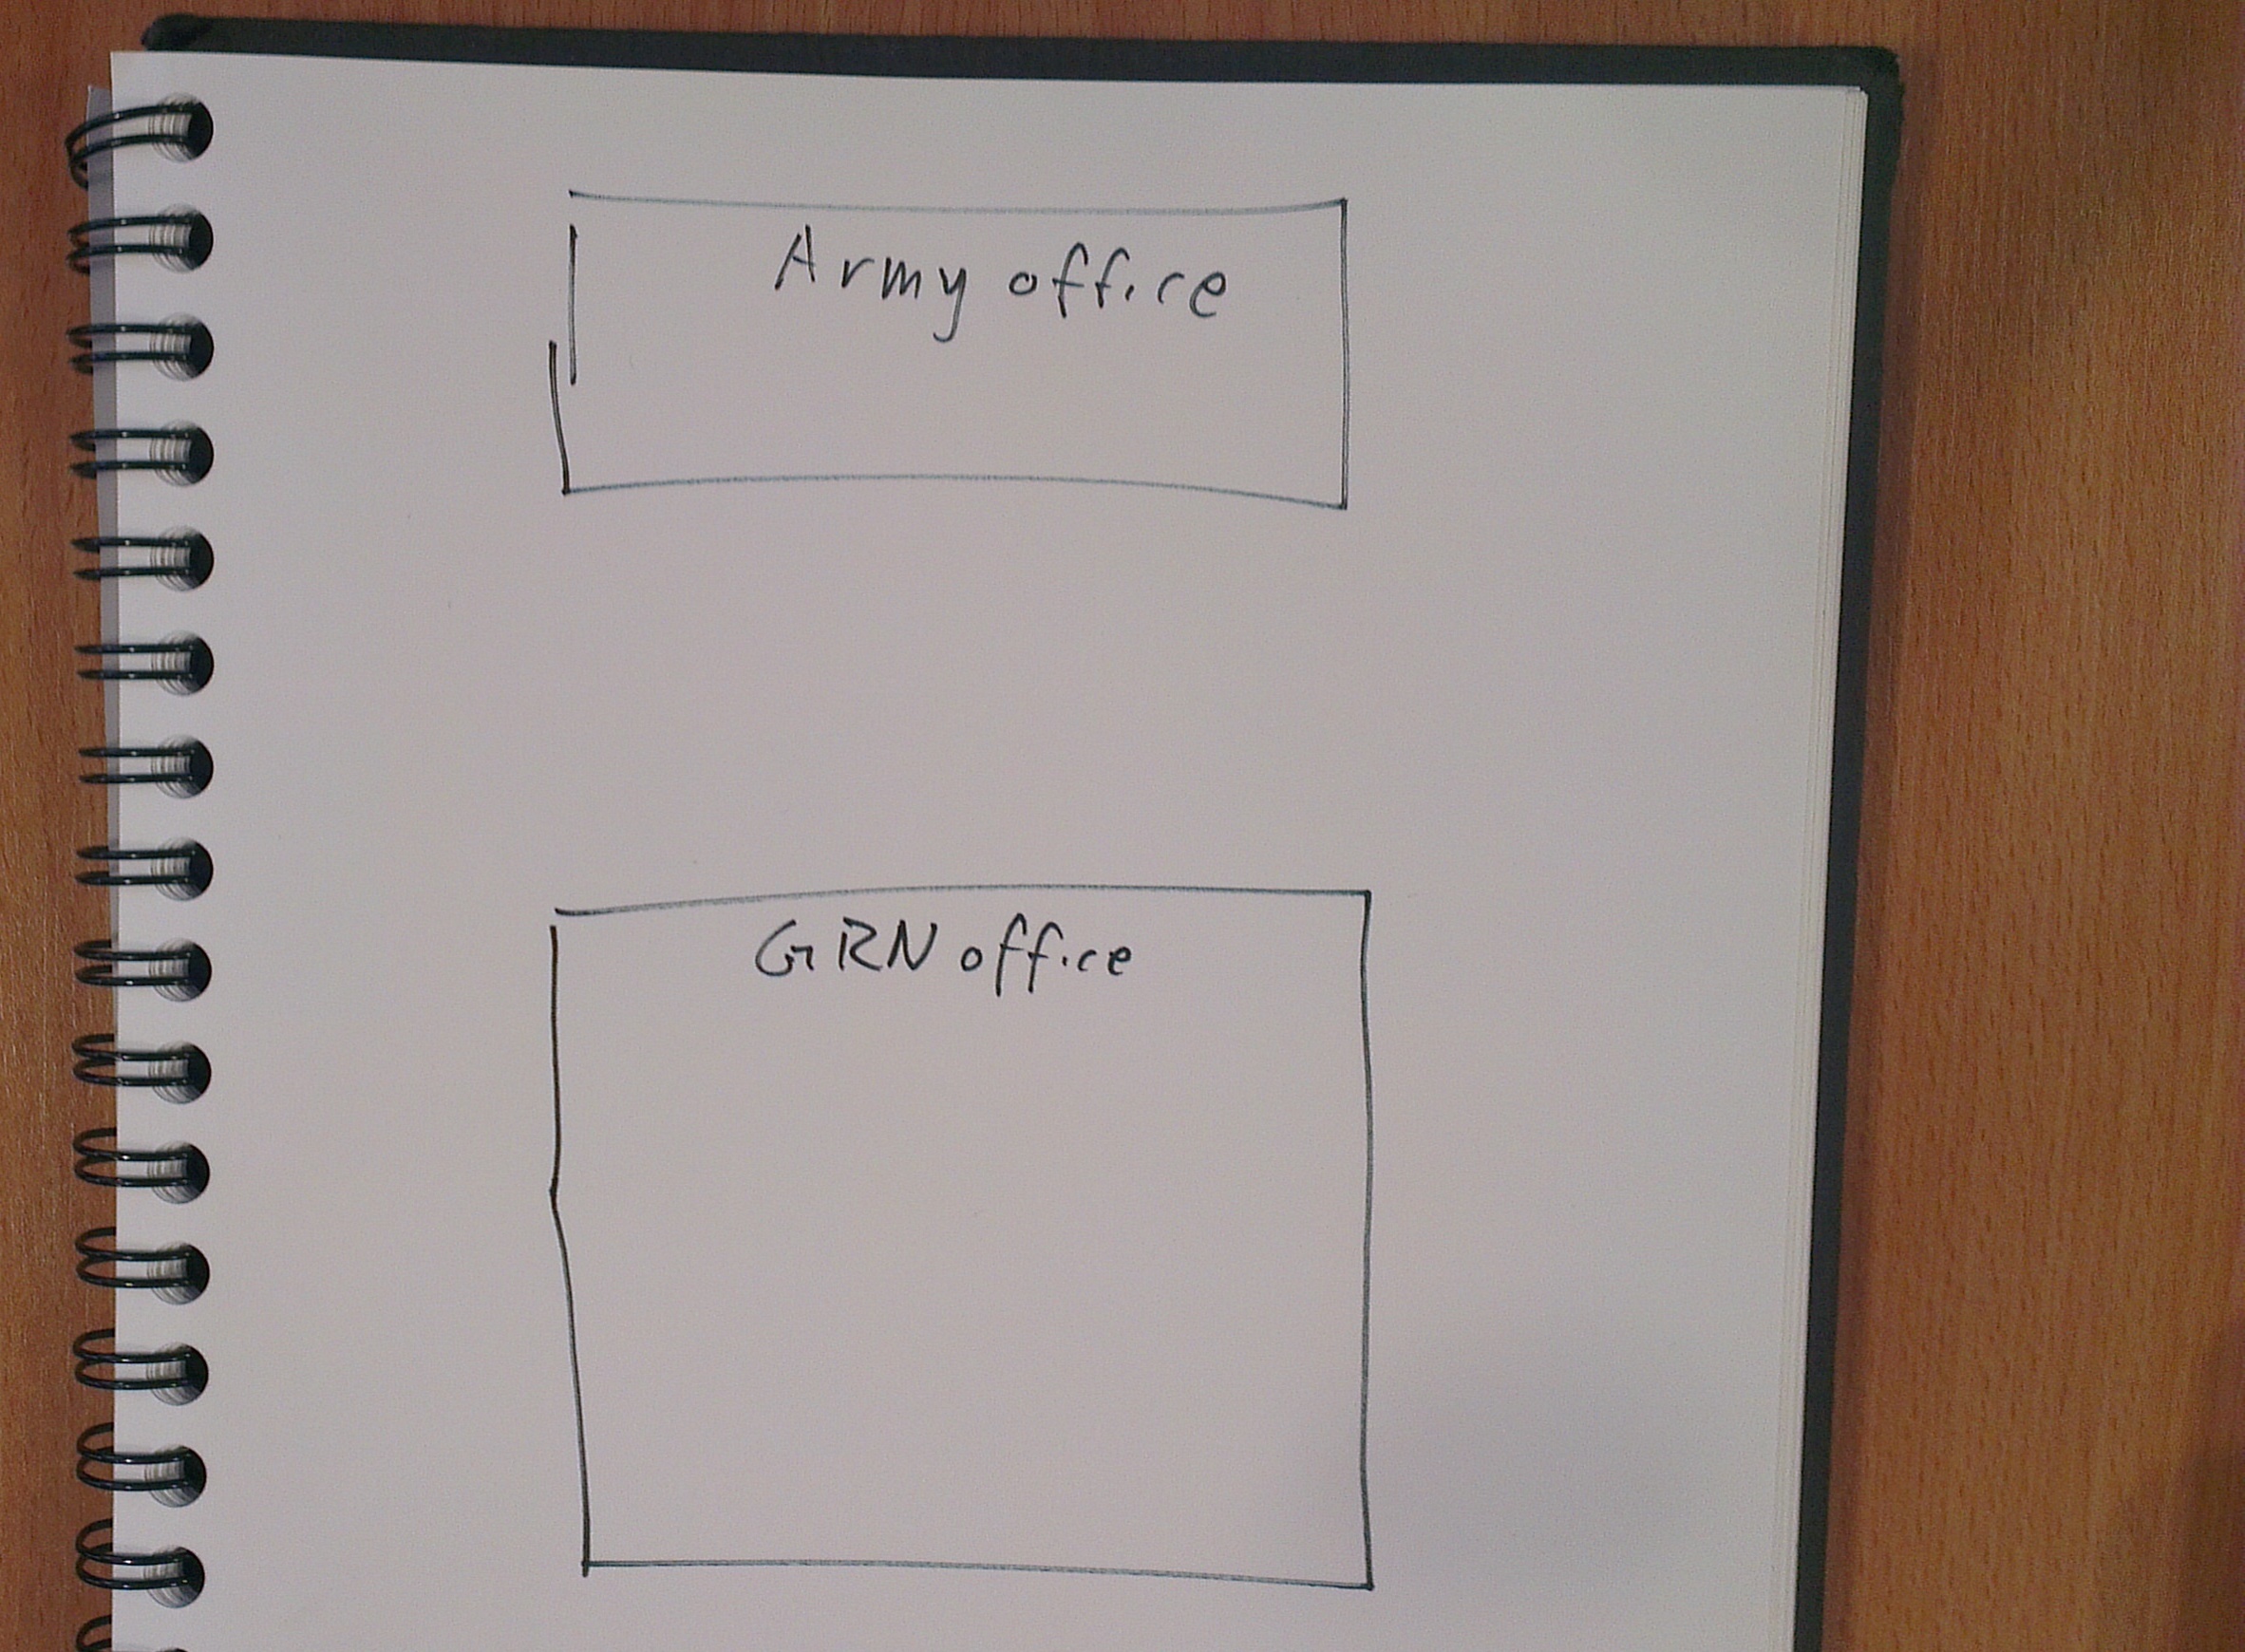 Army office
GRN office